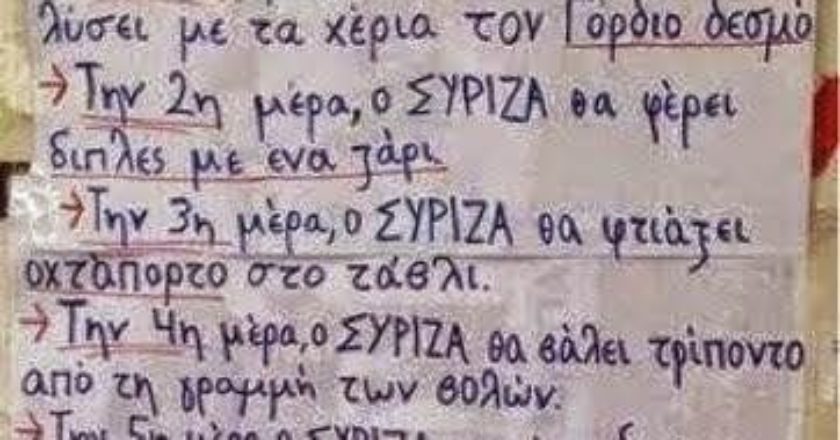 λύσει με τα χέρια τον Γόρδιο δεσμό
→Την 2η μέρα, ο ΣΥΡΙΖΑ θα φέρει
διπλές με ενα ζάρι.
→Την 3η μέρα, ο ΣΥΡΙΖΑ θα φτιάξει
οχτάπορτο στο τάβλι.
→Την 4η μέρα, ο ΣΥΡΙΖΑ θα βάλει τρίποντο
από τη γραμμή των βολών.
→Την 5η μέρα ο ΣΥΡΙΖΑ